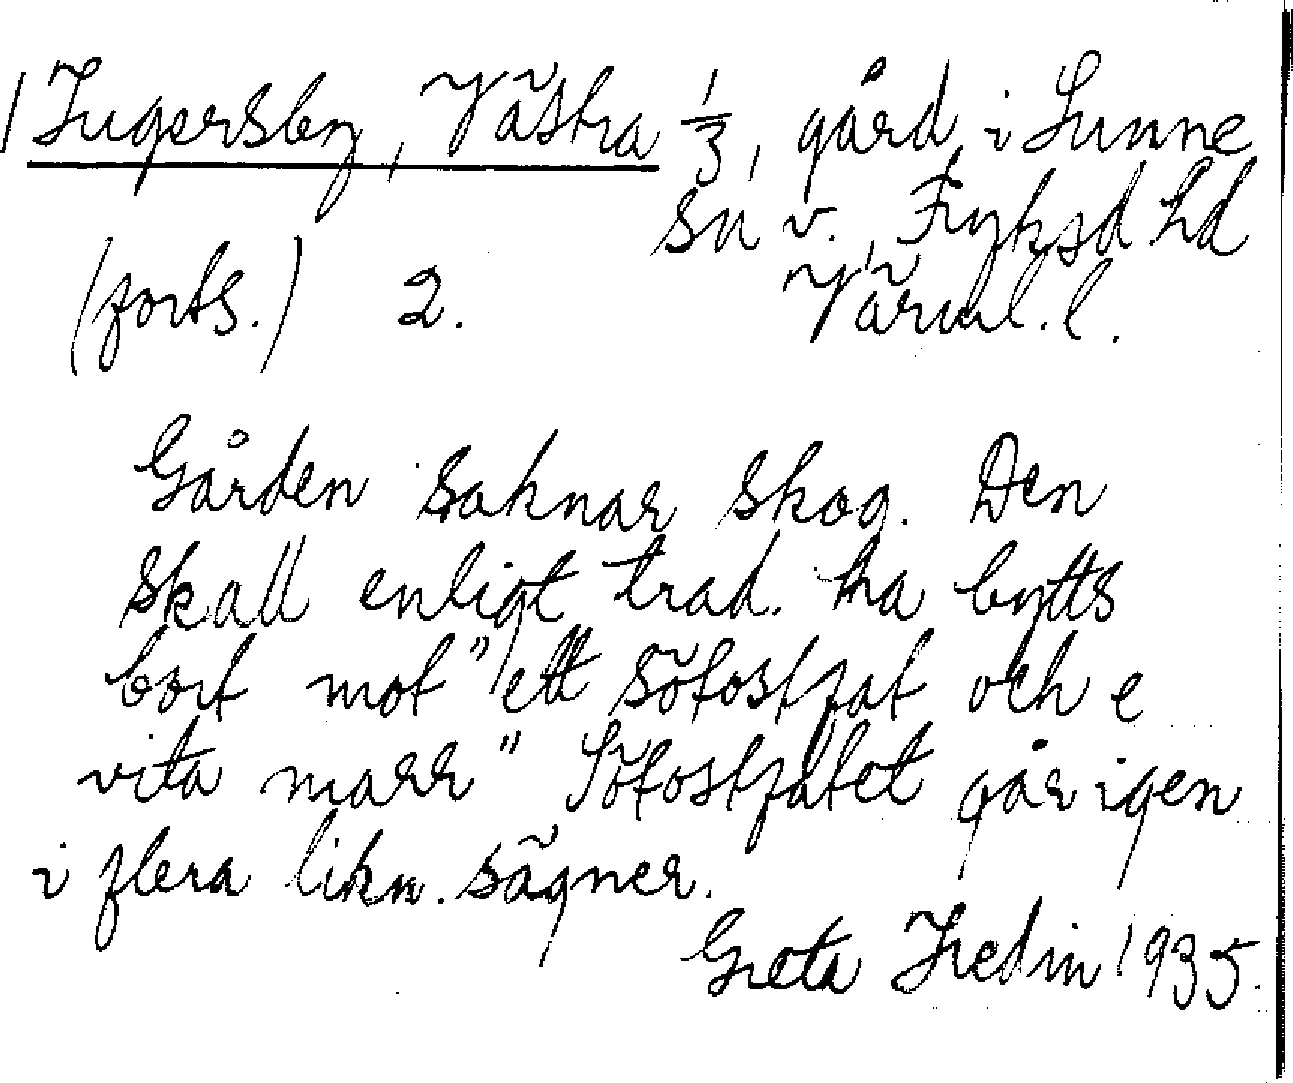 Ingersby, Västra 1/3, gård i Sunne
sn v., Fryksd hd
(forts.) 2. Värml. l.
Gården saknar skog. Den
skall enligt trad. ha bytts
bort mot "ett sötostfat och e
vita marr" Sötostfatet går igen
i flera likn. sägner.
Greta Hedin 1935.